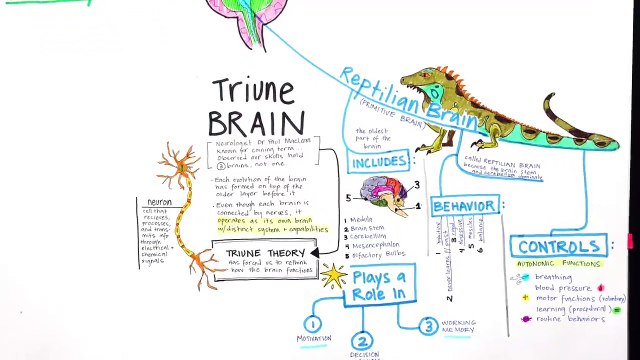 Triune
BRAIN
Neurologist Dr Paul MacLean
known for coining term.
Observed our skills hold
3 brains, not one.
· Each evolution of the brain
has formed on top of the
older layer before it
· Even though each brain is
connected by nerves, it
operates as its own brain
w/distinct system + capabilities
TRIUNE THEORY
has forced us to rethink
how the brain functions
neuron
cell that
receives,
processes,
and trans-
mits info
through
electrical +
chemical
signals
Reptilian Brain
(PRIMITIVE BRAIN)
the oldest
part of the
brain
INCLUDES:
3
5
1
1 Medula
2 Brain Stem
3 Cerebellum
4 Mesencephalon
5 Olfactory Bulbs
called REPTILIAN BRAIN
because the brain stem
and cerebellum dominate
BEHAVIOR:
1
2
3
4
5 muscles
6 balance
CONTROLS:
AUTONOMIC FUNCTIONS
breathing
blood pressure
motor functions (voluntary)
learning (procedural)
routine behaviors
Plays a
Role In
1
MOTIVATION
2
DECISION
3 WORKING
MEMORY